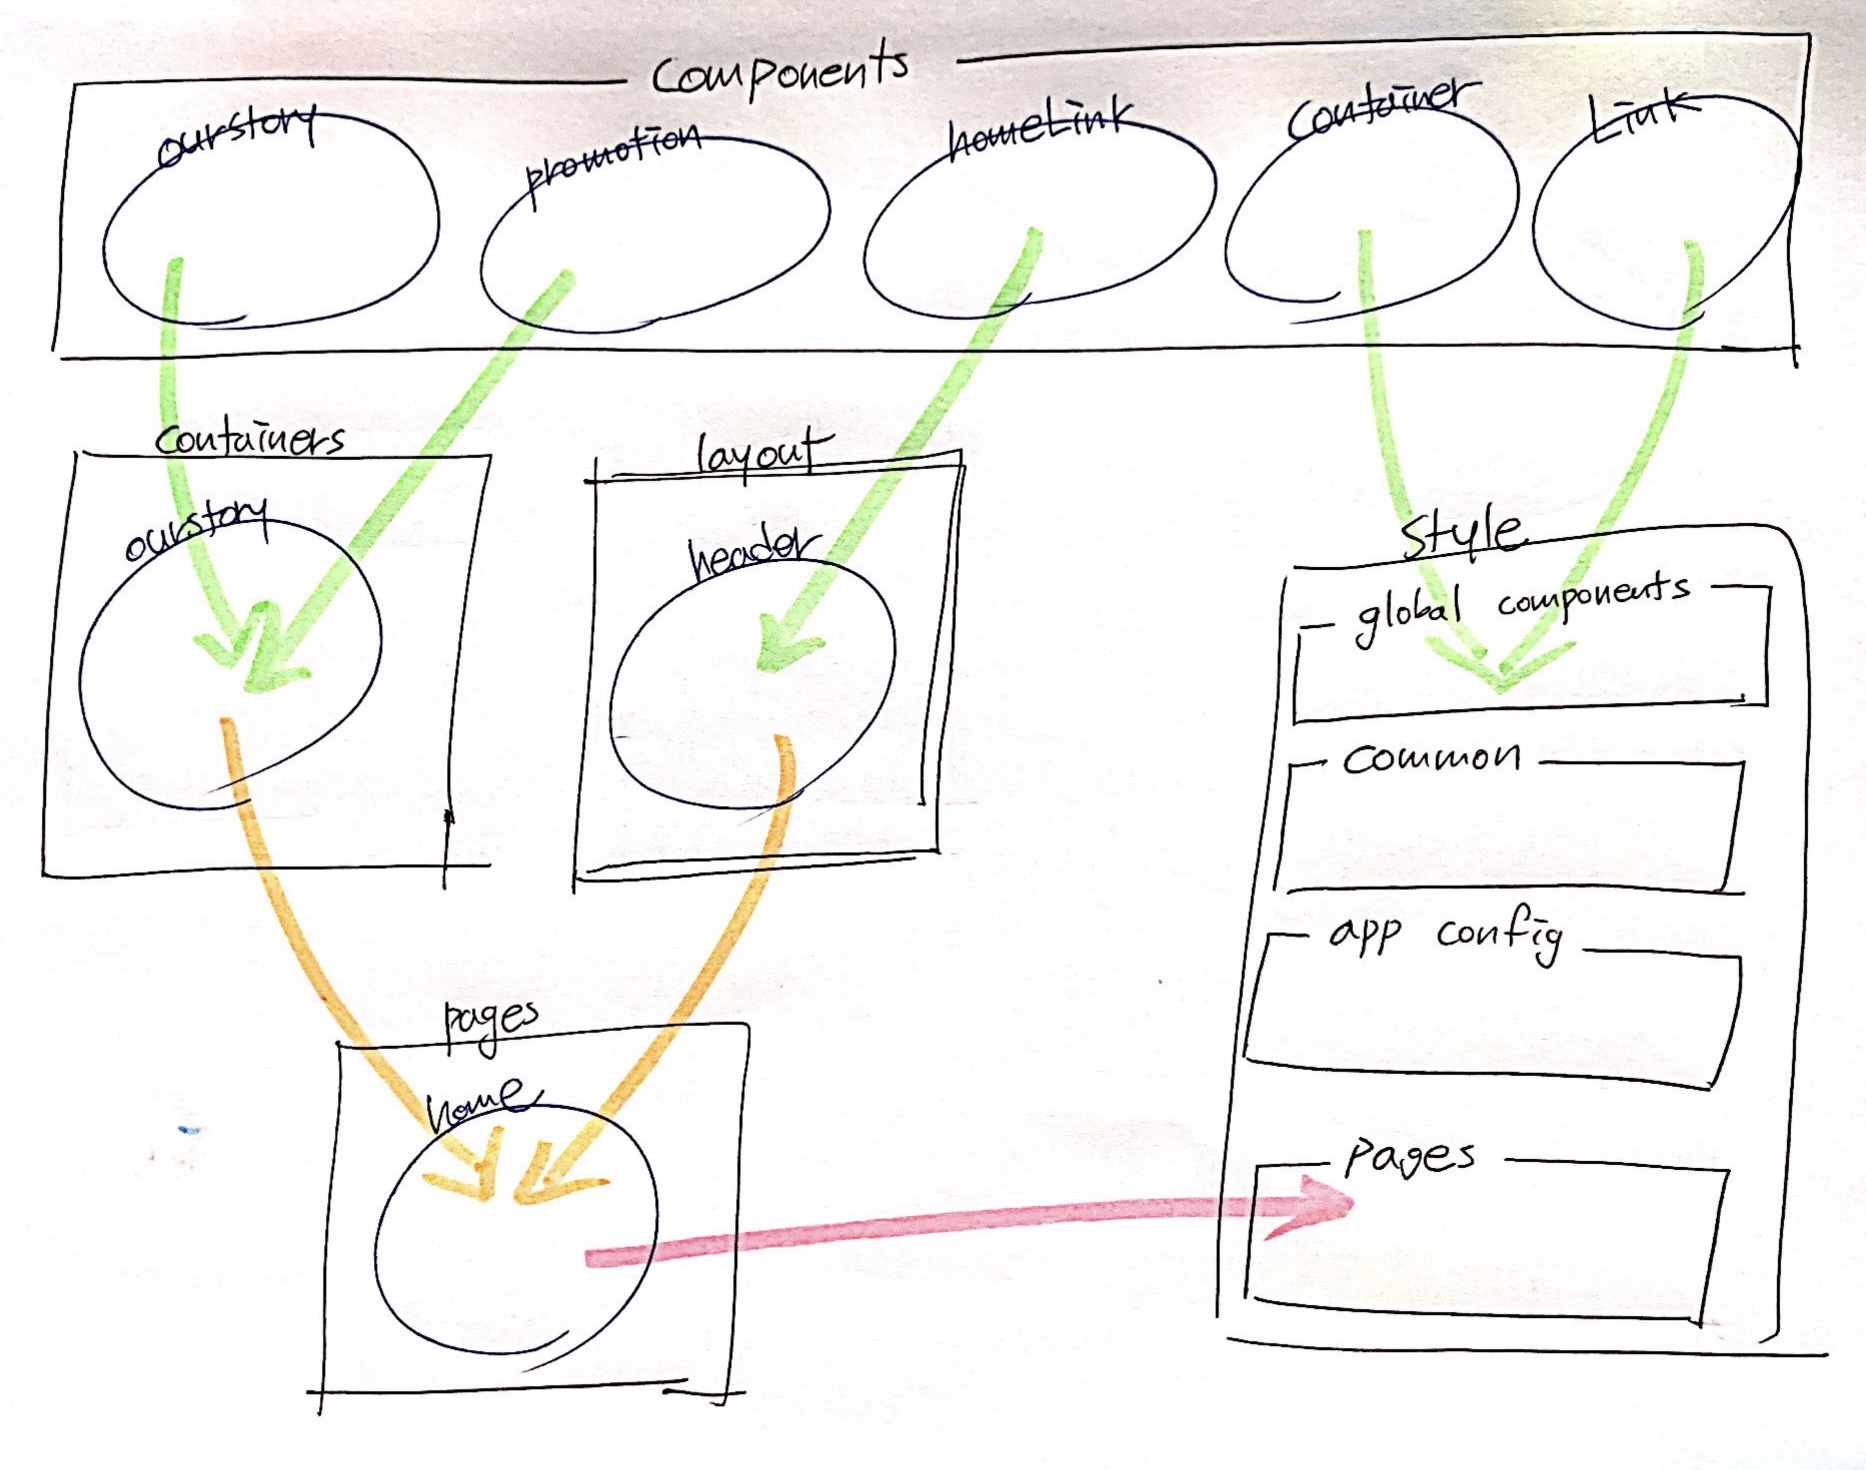 Components
ourstory
promotion
homeLink
Container
Link
Containers
ourstory
layout
header
Style
global components
Common
app config
pages
home
Pages